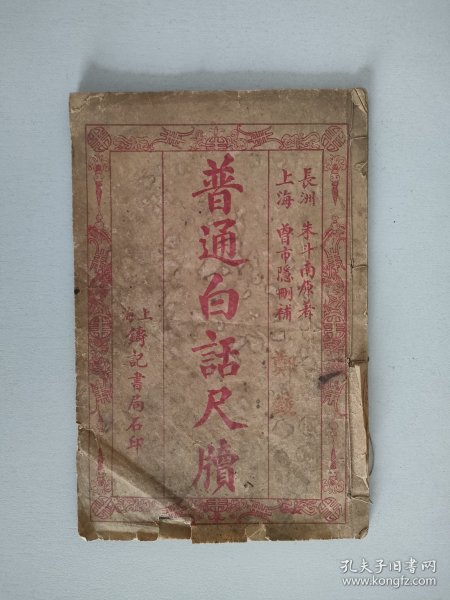 長洲 朱斗南原著
上海 曾市隱刪補
普通白話尺牘
上海鑄記書局石印
孔夫子旧书网
www.kongfz.com